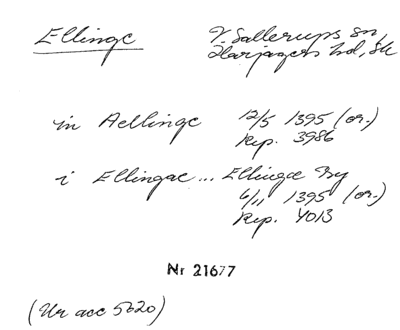 Ellinge
V. Sallerups sn,
Harjagers hd, Sk
in Aellinge 12/5 1395 (or.)
Rep. 3986
i Ellingae... Ellinge By
6/11 1395 (or.)
Rep. 4013
Nr 21677
(Ur acc 5620)